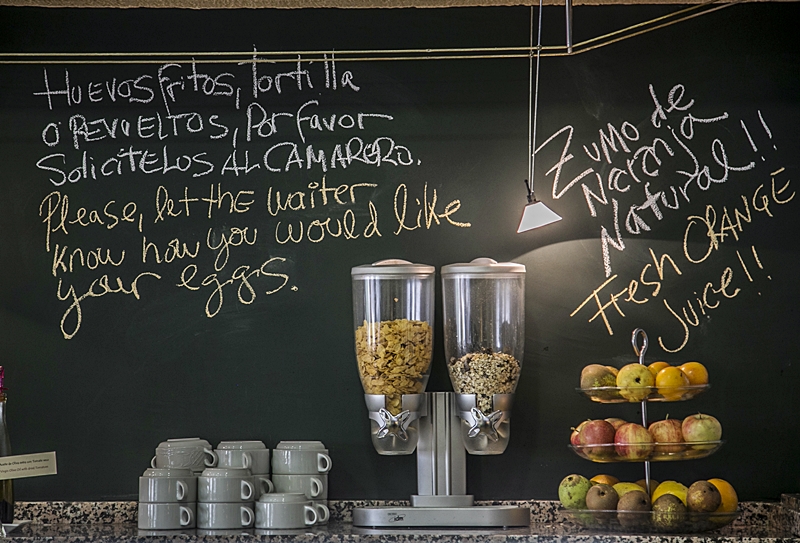 Huevos fritos, Tortilla
o REVUELTOS, Por favor
Solicítelos AL CAMARERO.
Please, let the waiter
know how you would like
your eggs.
Zumo de
Naranja
Natural!!
Fresh ORANGE
Juice!!